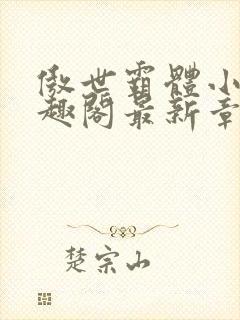 傲世霸體小
趣閣最新章
楚宗山